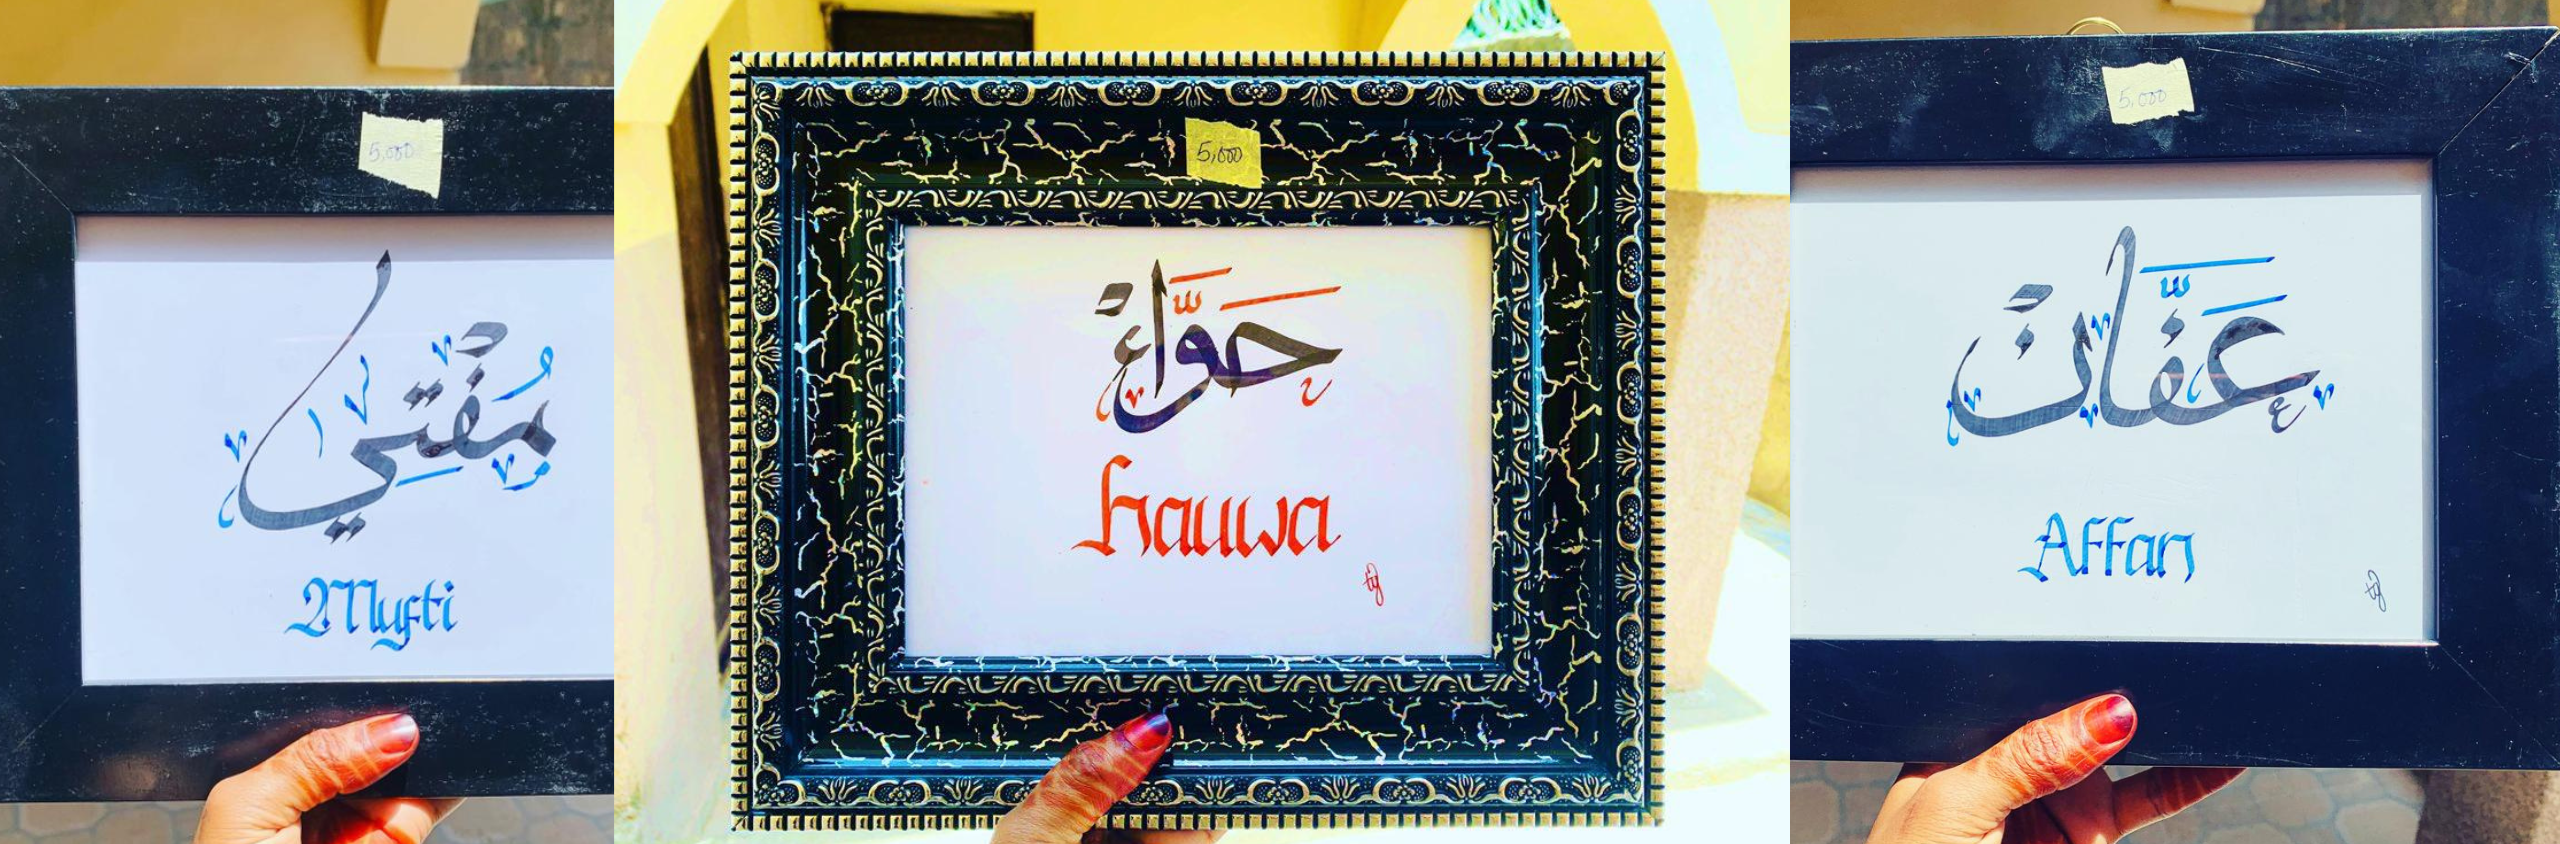 5,000
مُفْتِي
Mufti
5,000
حَوَّاءْ
hauwa
5,000
عَفَّانْ
Affan